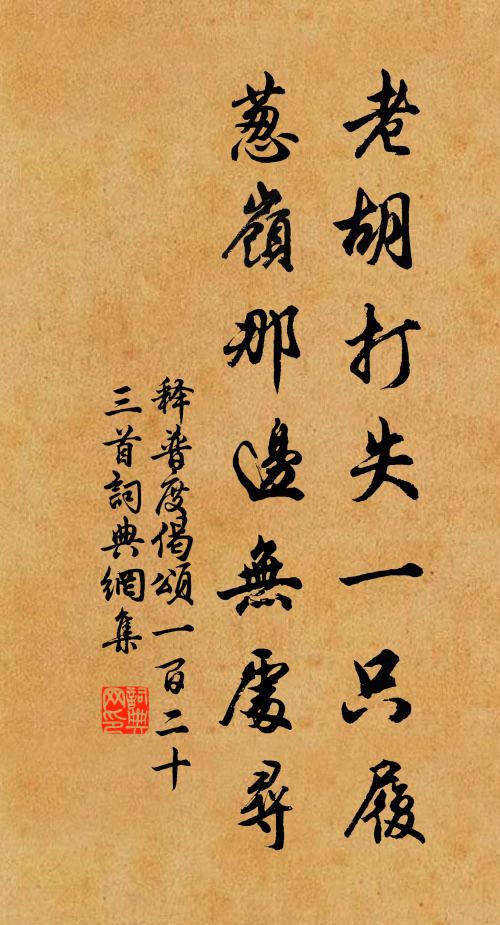 老胡打失一只履
葱嶺那邊無處尋
释普度偈頌一百二十
三首詞典網集
詞典网印